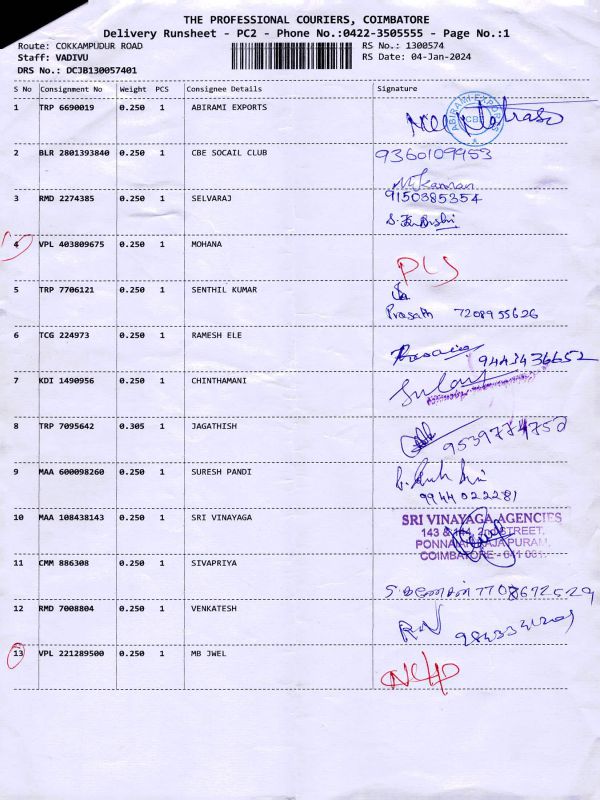 THE PROFESSIONAL COURIERS, COIMBATORE
Delivery Runsheet - PC2 - Phone No.:0422-3505555 - Page No.:1
Route: COKKAMPUDUR ROAD RS No.: 1300574
Staff: VADIVU RS Date: 04-Jan-2024
DRS No.: DCJB130057401
S No Consignment No Weight PCS Consignee Details Signature
1 TRP 6690019 0.250 1 ABIRAMI EXPORTS
ABIRAMI EXPORTS CBE
2 BLR 2801393840 0.250 1 CBE SOCAIL CLUB 9360109953
3 RMD 2274385 0.250 1 SELVARAJ 9150385354
4 VPL 403809675 0.250 1 MOHANA
PLS
5 TRP 7706121 0.250 1 SENTHIL KUMAR
Prasath 7208955626
6 TCG 224973 0.250 1 RAMESH ELE
9443436652
7 KDI 1490956 0.250 1 CHINTHAMANI
8 TRP 7095642 0.305 1 JAGATHISH
9539774752
9 MAA 600098260 0.250 1 SURESH PANDI
9944022281
10 MAA 108438143 0.250 1 SRI VINAYAGA SRI VINAYAGA AGENCIES
143 & 144, 2nd STREET,
PONNAIAH RAJAPURAM,
COIMBATORE - 641 001.
11 CMM 886308 0.250 1 SIVAPRIYA
7708672529
12 RMD 7008804 0.250 1 VENKATESH
RN
13 VPL 221289500 0.250 1 MB JWEL